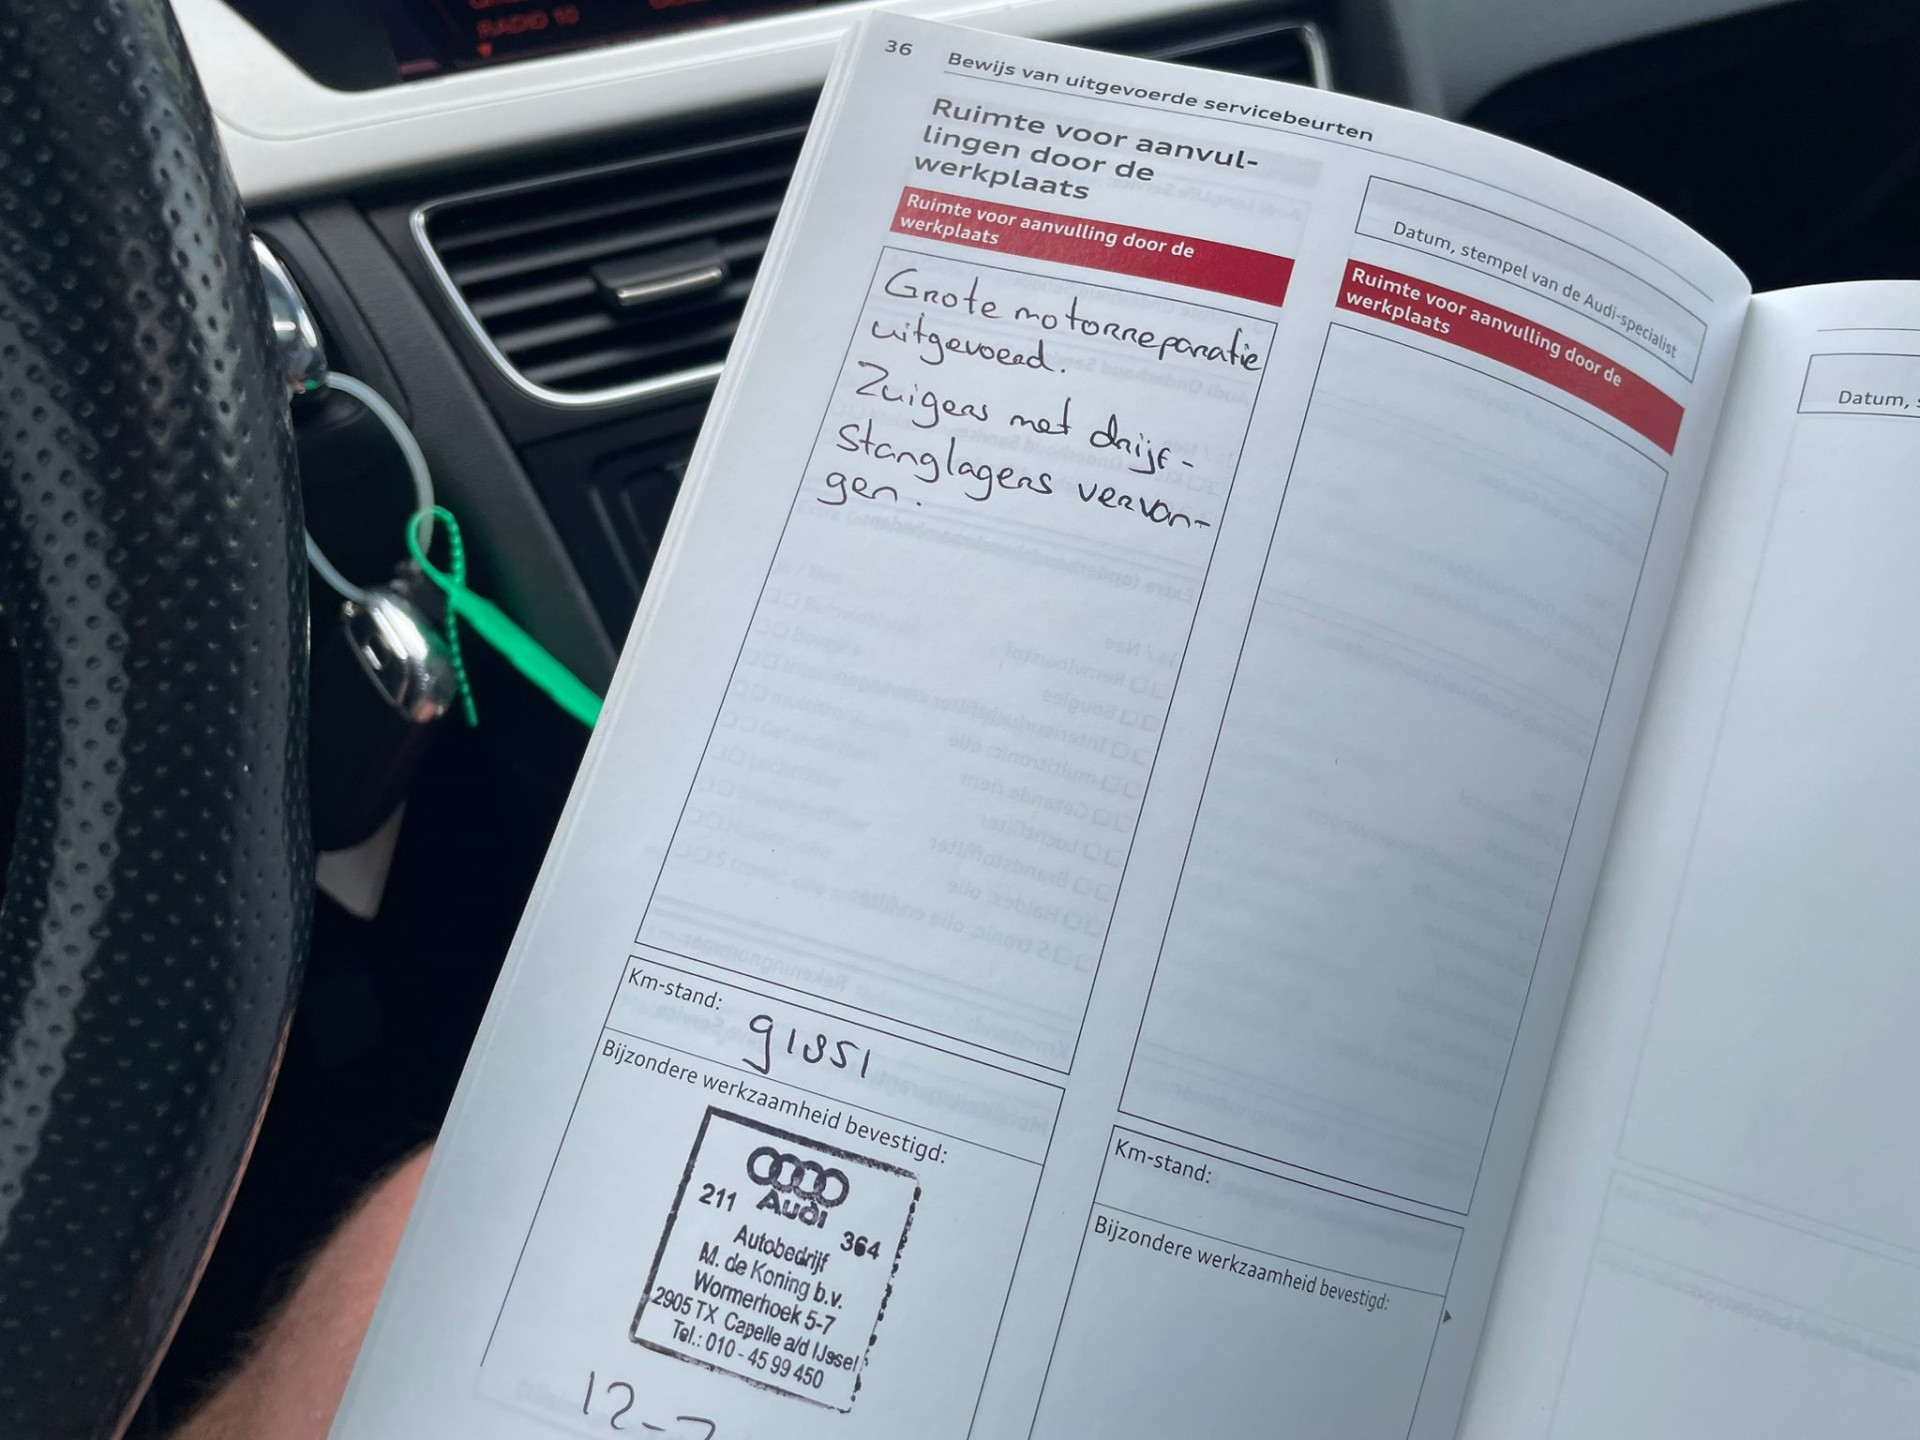 RADIO 10
36
Bewijs van uitgevoerde servicebeurten
Ruimte voor aanvul-
lingen door de
werkplaats
Ruimte voor aanvulling door de
werkplaats
Grote motorreparatie
uitgevoerd.
Zuigers met drijf-
stanglagers vervan-
gen.
Km-stand:
91851
Bijzondere werkzaamheid bevestigd:
Audi
211
364
Autobedrijf
M. de Koning b.v.
Wormerhoek 5-7
2905 TX Capelle a/d IJssel
Tel.: 010 - 45 99 450
12-7
Datum, stempel van de Audi-specialist
Ruimte voor aanvulling door de
werkplaats
Km-stand:
Bijzondere werkzaamheid bevestigd:
Datum,